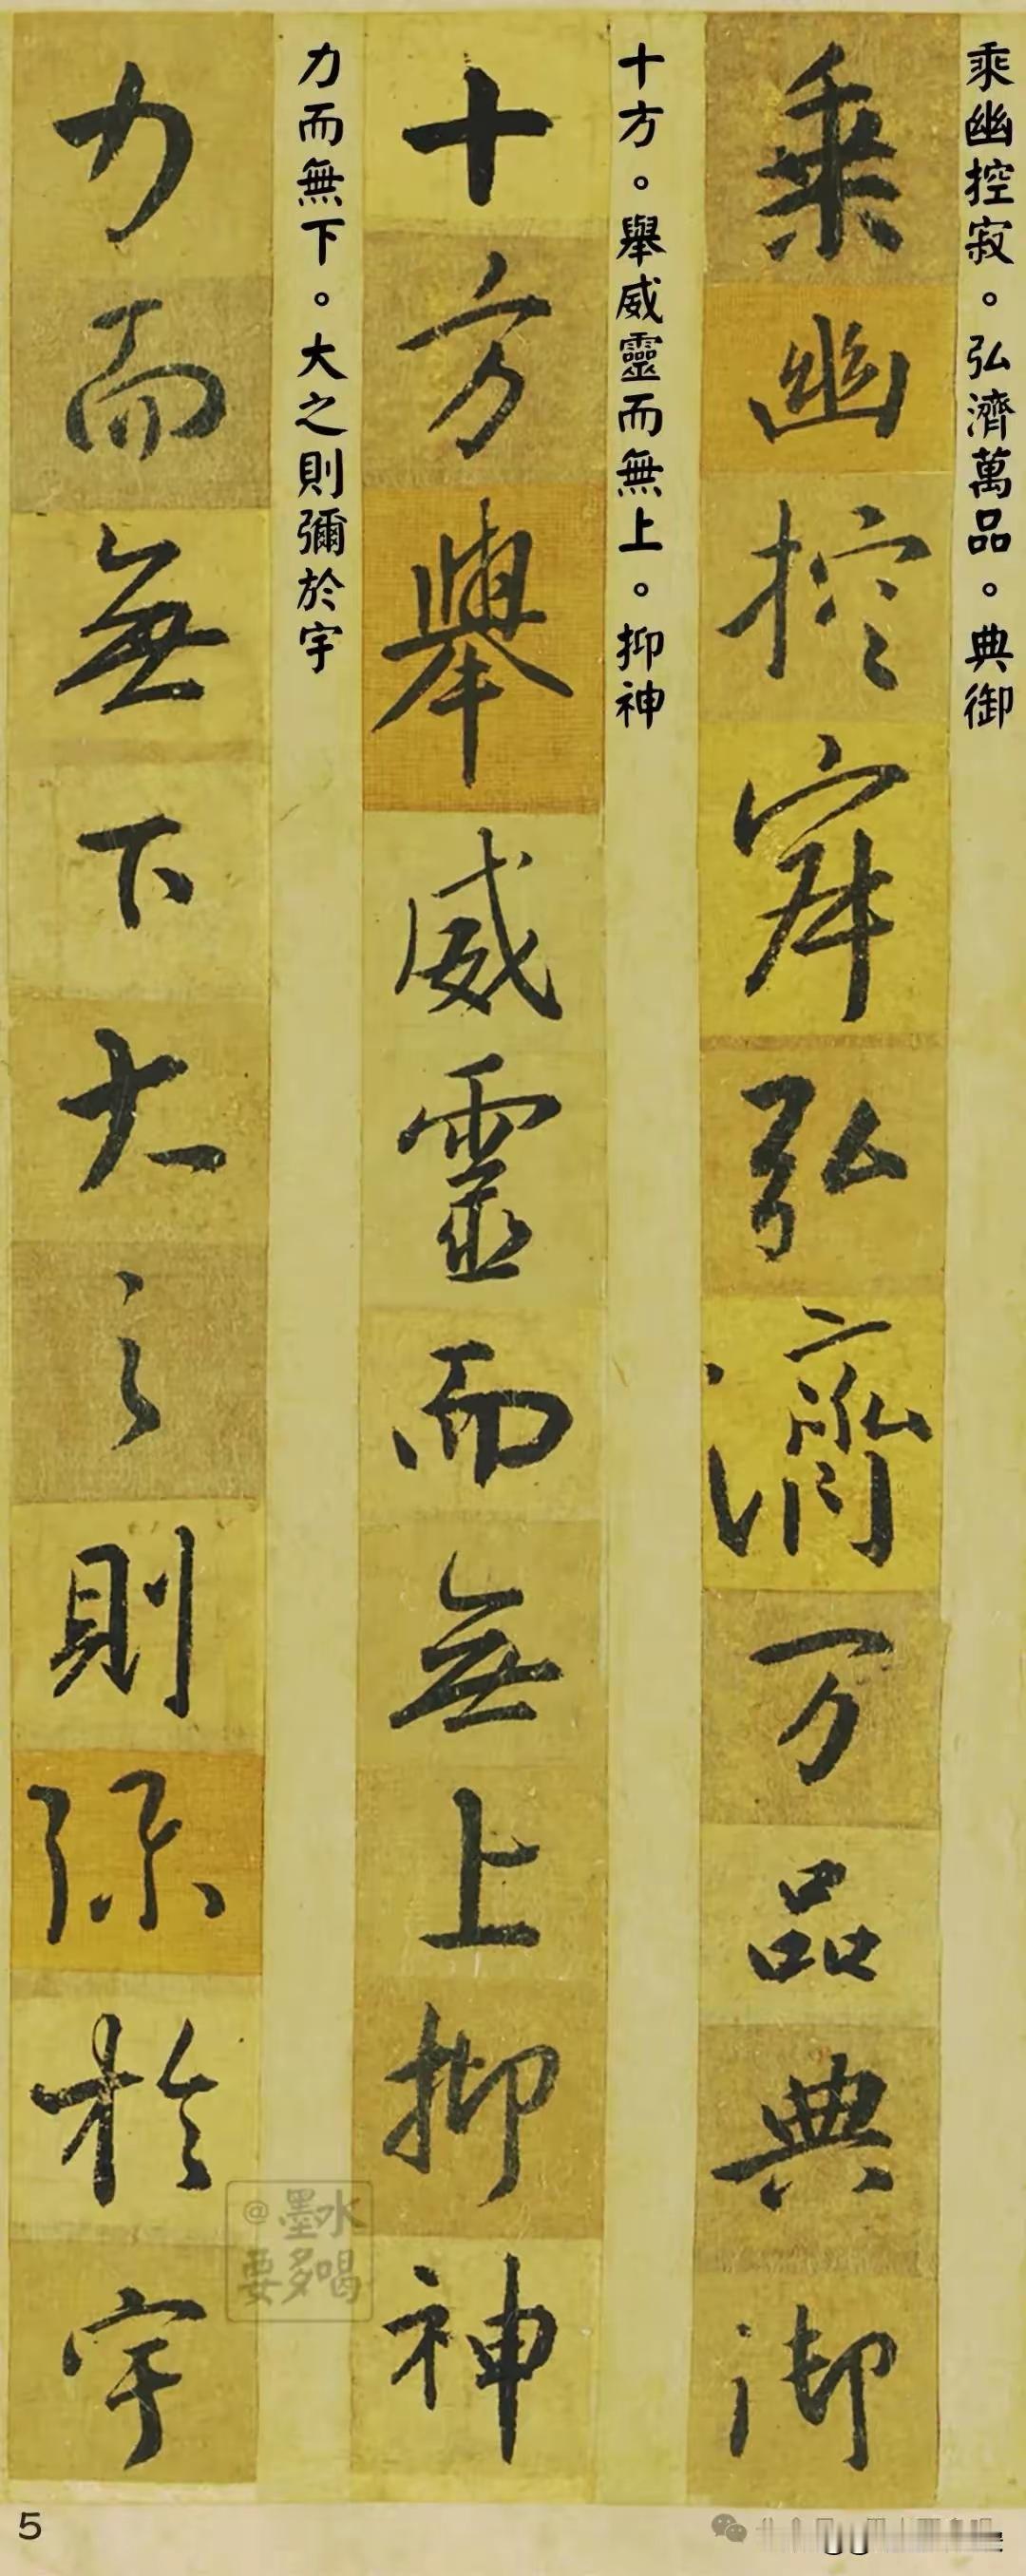 乘幽控寂。弘濟萬品。典御
乘幽控寂弘濟万品典御
十方。舉威靈而無上。抑神
十方舉威靈而無上抑神
力而無下。大之則彌於宇
力而無下大之則弥於宇
@墨水
要多喝
5